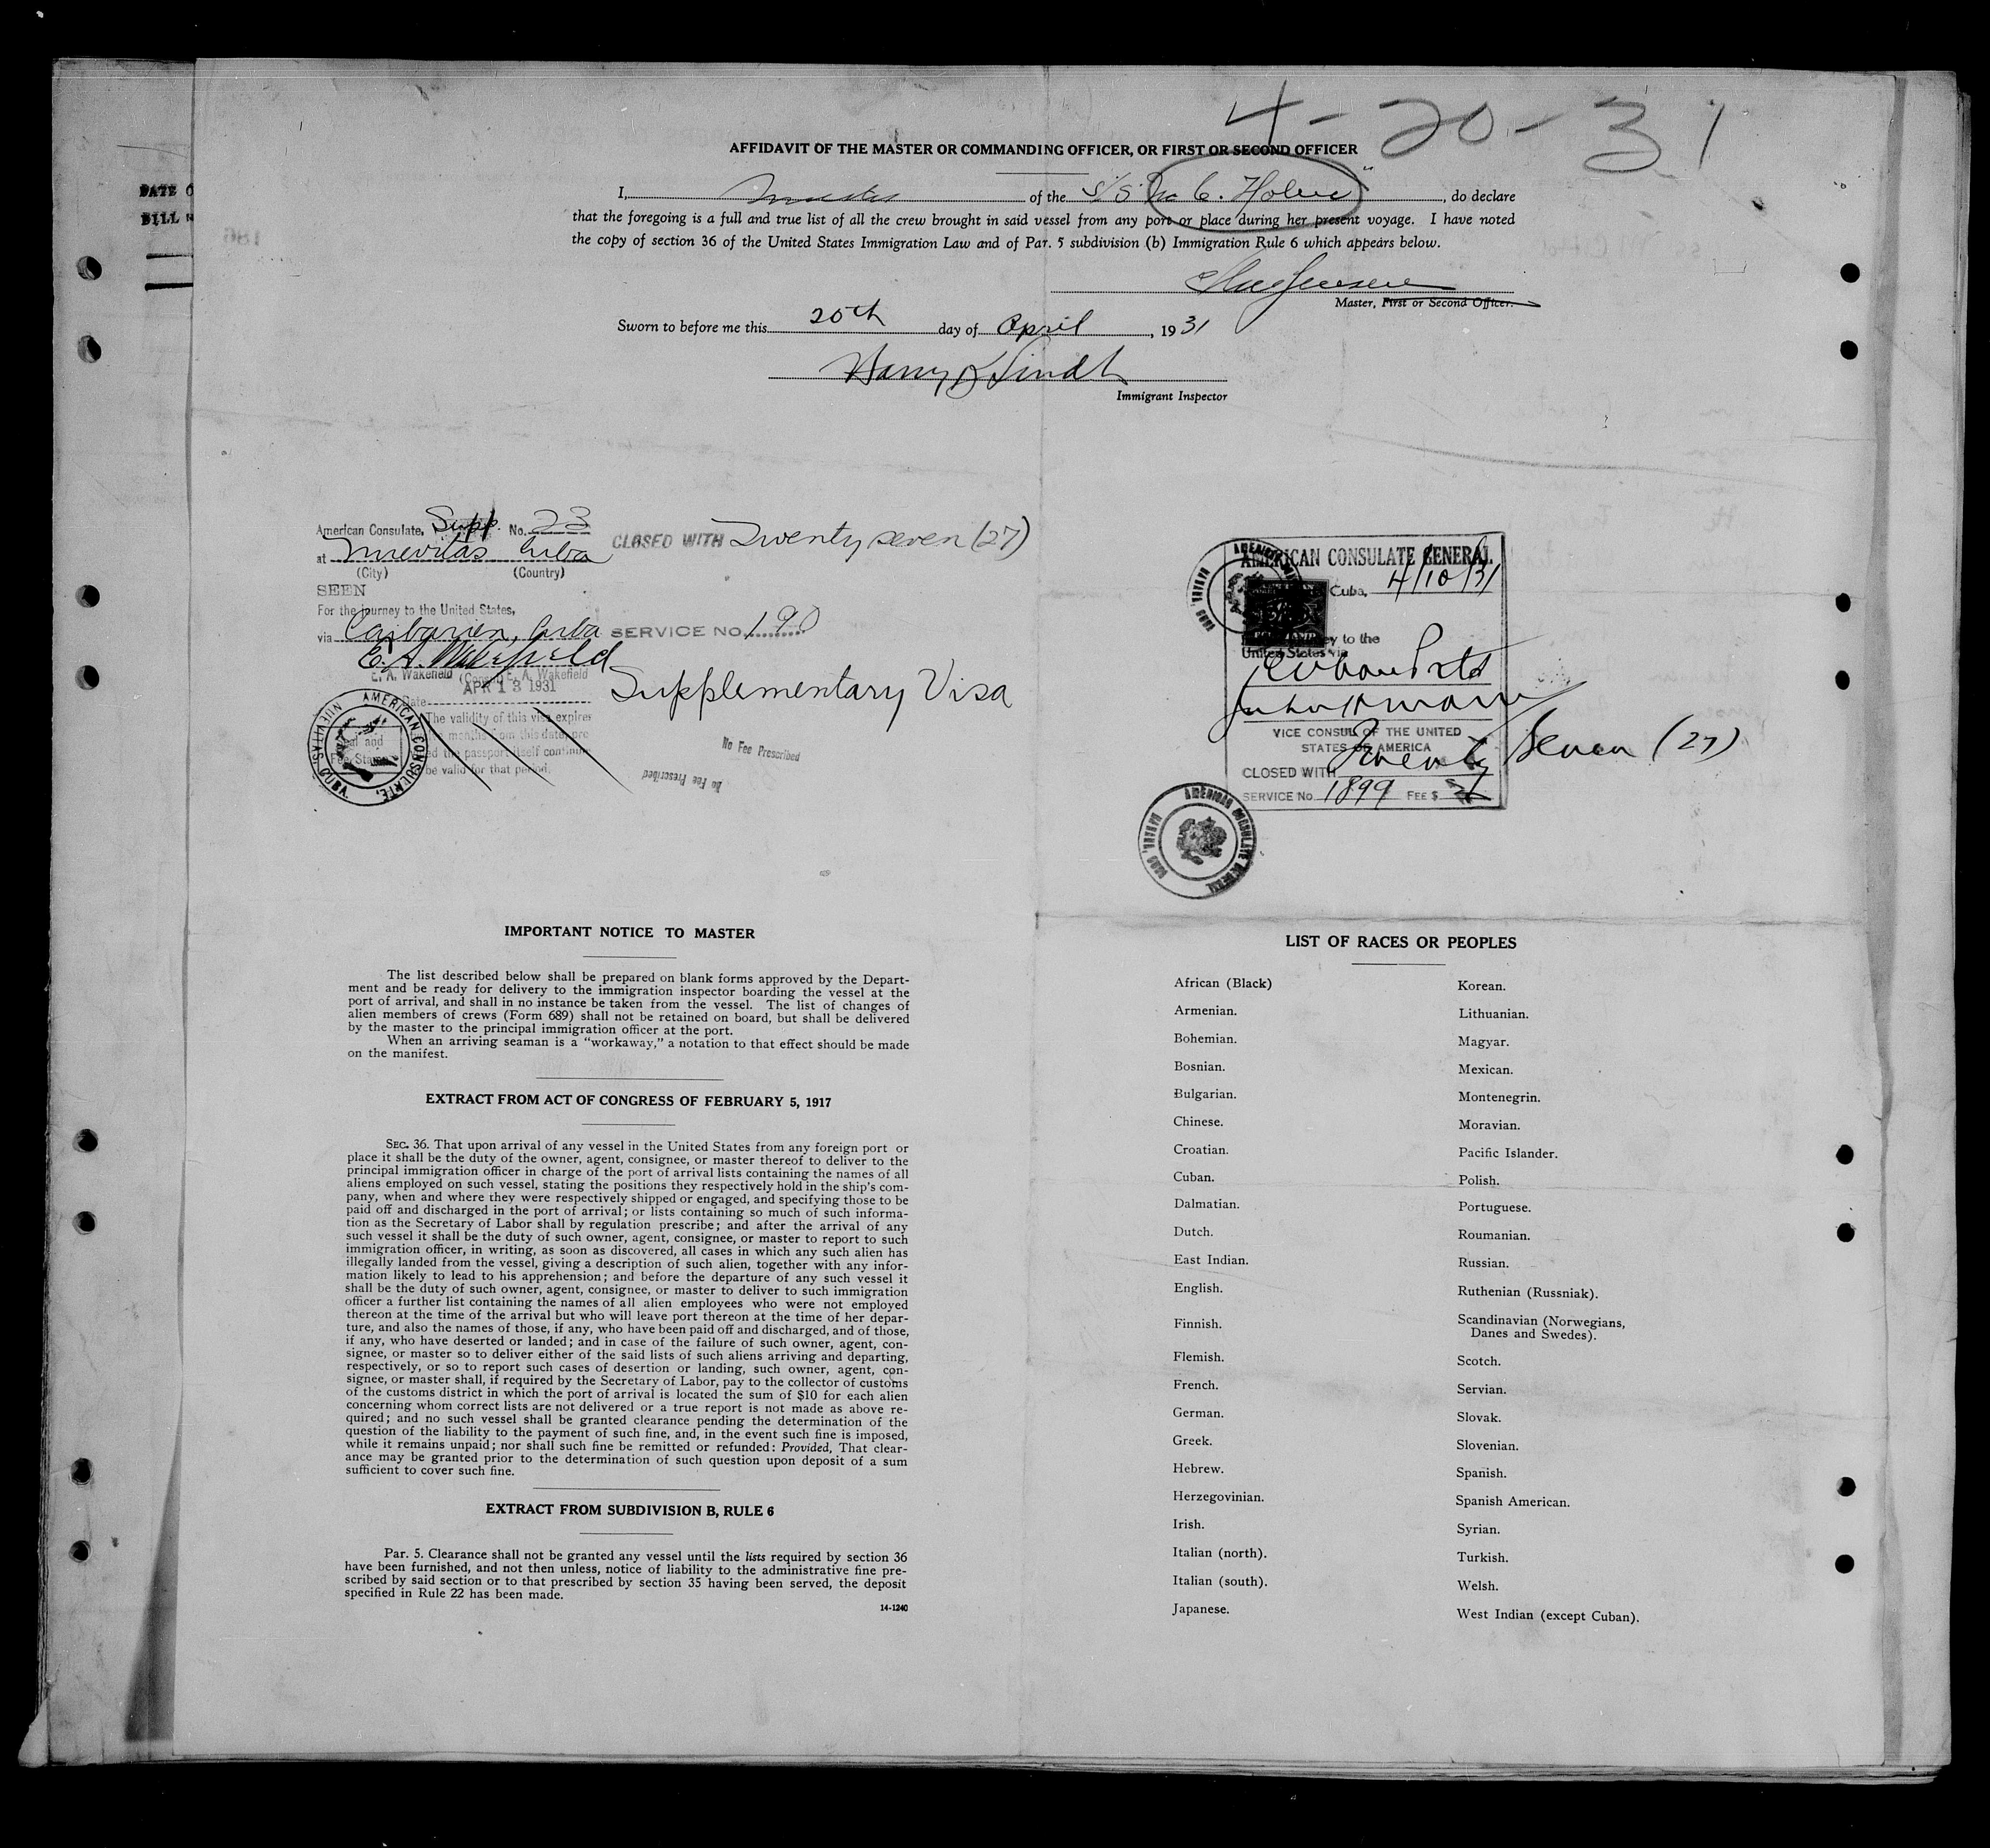 4-20-31
DATE O
BILL
AFFIDAVIT OF THE MASTER OR COMMANDING OFFICER, OR FIRST OR SECOND OFFICER
I, Master of the S/S "M. C. Holm", do declare
that the foregoing is a full and true list of all the crew brought in said vessel from any port or place during her present voyage. I have noted
the copy of section 36 of the United States Immigration Law and of Par. 5 subdivision (b) Immigration Rule 6 which appears below.
Master, First or Second Officer.
Sworn to before me this 20th day of April, 1931
Immigrant Inspector
American Consulate, Supl. No. 23
CLOSED WITH Twenty seven (27)
at Nuevitas Cuba
(City) (Country)
SEEN
For the journey to the United States,
via Caibarien, Cuba
SERVICE NO. 190
E. A. Wakefield
E. A. Wakefield (Consul) E. A. Wakefield
APR 13 1931
Date
Supplementary Visa
The validity of this visa expires
months from this date, pro
ed the passport itself continue
be valid for that period.
AMERICAN CONSULATE, NUEVITAS, CUBA
No Fee Prescribed
No Fee Prescribed
AMERICAN CONSULATE GENERAL
Cuba, 4/10/31
to the
United States via
Cuban Ports
VICE CONSUL OF THE UNITED
STATES OF AMERICA
CLOSED WITH Twenty Seven (27)
SERVICE No. 1899 FEE $
AMERICAN CONSULATE GENERAL HABANA, CUBA
IMPORTANT NOTICE TO MASTER
The list described below shall be prepared on blank forms approved by the Depart-
ment and be ready for delivery to the immigration inspector boarding the vessel at the
port of arrival, and shall in no instance be taken from the vessel. The list of changes of
alien members of crews (Form 689) shall not be retained on board, but shall be delivered
by the master to the principal immigration officer at the port.
When an arriving seaman is a "workaway," a notation to that effect should be made
on the manifest.
EXTRACT FROM ACT OF CONGRESS OF FEBRUARY 5, 1917
SEC. 36. That upon arrival of any vessel in the United States from any foreign port or
place it shall be the duty of the owner, agent, consignee, or master thereof to deliver to the
principal immigration officer in charge of the port of arrival lists containing the names of all
aliens employed on such vessel, stating the positions they respectively hold in the ship's com-
pany, when and where they were respectively shipped or engaged, and specifying those to be
paid off and discharged in the port of arrival; or lists containing so much of such informa-
tion as the Secretary of Labor shall by regulation prescribe; and after the arrival of any
such vessel it shall be the duty of such owner, agent, consignee, or master to report to such
immigration officer, in writing, as soon as discovered, all cases in which any such alien has
illegally landed from the vessel, giving a description of such alien, together with any infor-
mation likely to lead to his apprehension; and before the departure of any such vessel it
shall be the duty of such owner, agent, consignee, or master to deliver to such immigration
officer a further list containing the names of all alien employees who were not employed
thereon at the time of the arrival but who will leave port thereon at the time of her depar-
ture, and also the names of those, if any, who have been paid off and discharged, and of those,
if any, who have deserted or landed; and in case of the failure of such owner, agent, con-
signee, or master so to deliver either of the said lists of such aliens arriving and departing,
respectively, or so to report such cases of desertion or landing, such owner, agent, con-
signee, or master shall, if required by the Secretary of Labor, pay to the collector of customs
of the customs district in which the port of arrival is located the sum of $10 for each alien
concerning whom correct lists are not delivered or a true report is not made as above re-
quired; and no such vessel shall be granted clearance pending the determination of the
question of the liability to the payment of such fine, and, in the event such fine is imposed,
while it remains unpaid; nor shall such fine be remitted or refunded: Provided, That clear-
ance may be granted prior to the determination of such question upon deposit of a sum
sufficient to cover such fine.
EXTRACT FROM SUBDIVISION B, RULE 6
Par. 5. Clearance shall not be granted any vessel until the lists required by section 36
have been furnished, and not then unless, notice of liability to the administrative fine pre-
scribed by said section or to that prescribed by section 35 having been served, the deposit
specified in Rule 22 has been made.
14-1240
LIST OF RACES OR PEOPLES
African (Black)
Armenian.
Bohemian.
Bosnian.
Bulgarian.
Chinese.
Croatian.
Cuban.
Dalmatian.
Dutch.
East Indian.
English.
Finnish.
Flemish.
French.
German.
Greek.
Hebrew.
Herzegovinian.
Irish.
Italian (north).
Italian (south).
Japanese.
Korean.
Lithuanian.
Magyar.
Mexican.
Montenegrin.
Moravian.
Pacific Islander.
Polish.
Portuguese.
Roumanian.
Russian.
Ruthenian (Russniak).
Scandinavian (Norwegians,
Danes and Swedes).
Scotch.
Servian.
Slovak.
Slovenian.
Spanish.
Spanish American.
Syrian.
Turkish.
Welsh.
West Indian (except Cuban).